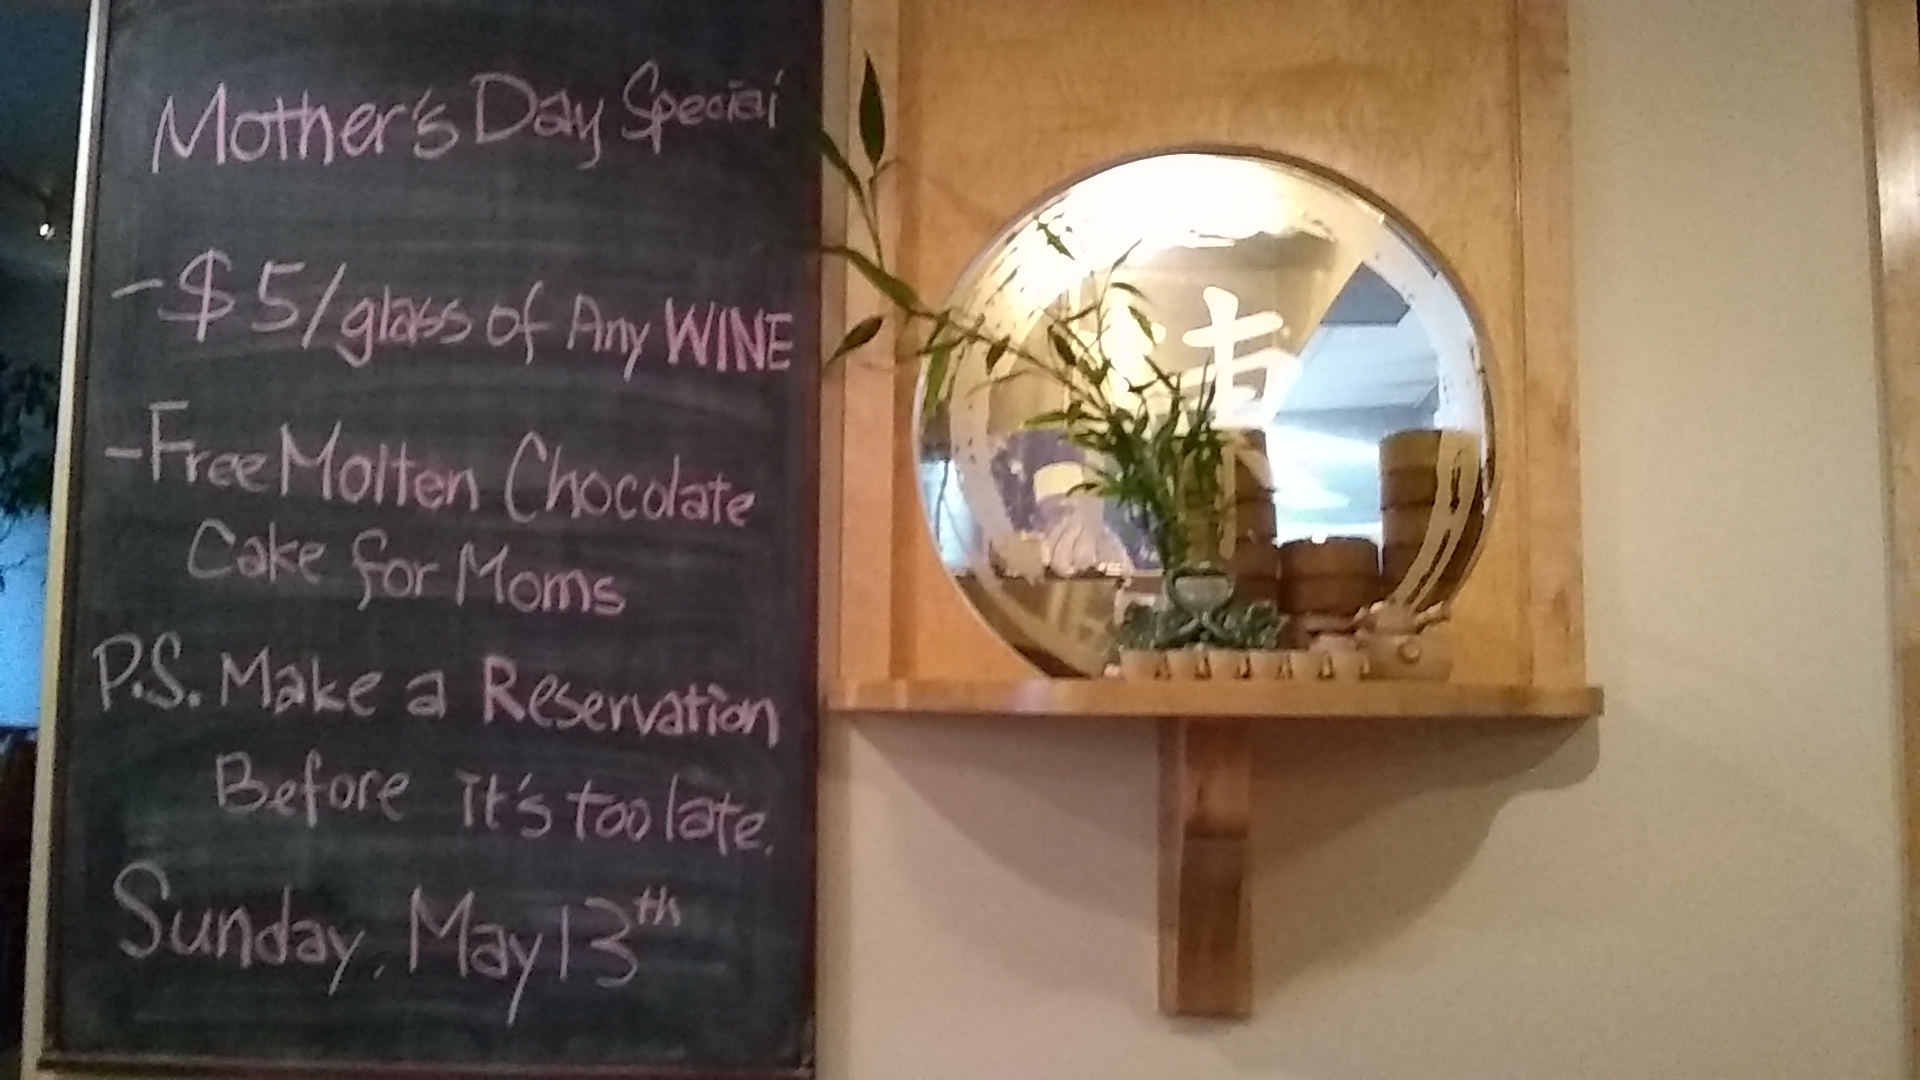 Mother's Day Special
-$5/glass of Any WINE
-Free Molten Chocolate
Cake for Moms
P.S. Make a Reservation
Before it's too late.
Sunday, May 13th